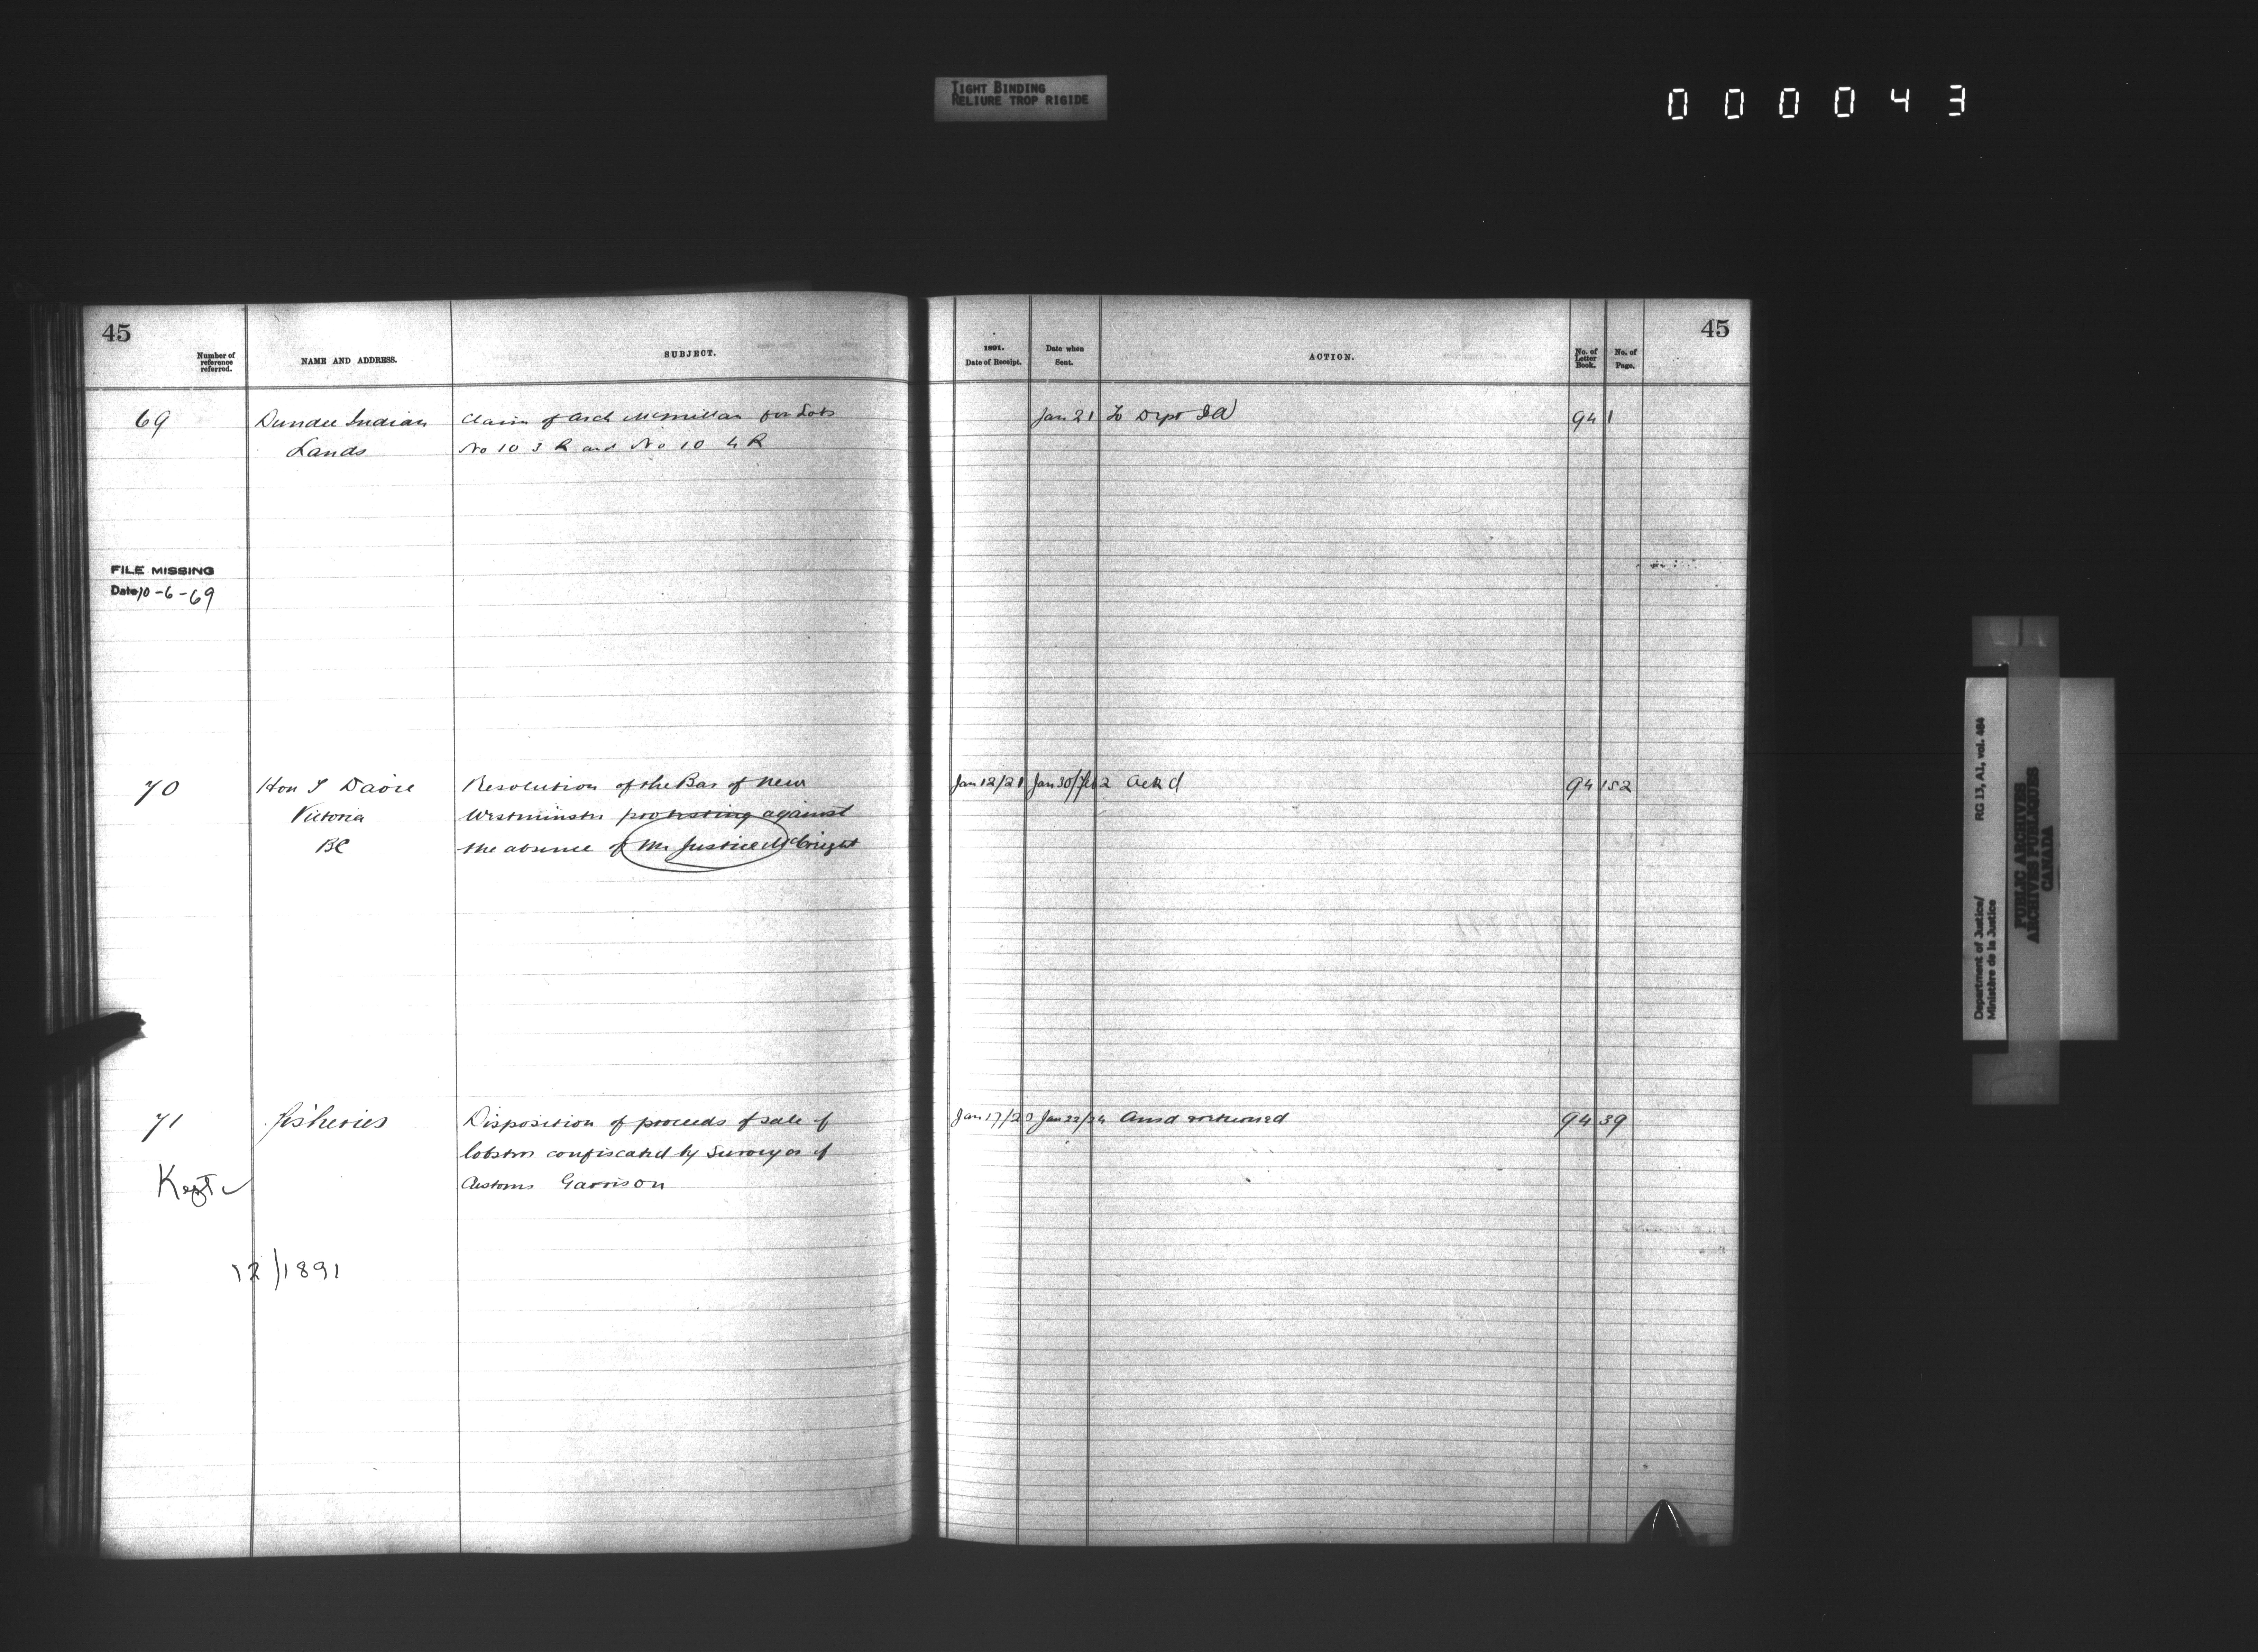 TIGHT BINDING
RELIURE TROP RIGIDE
0 0 0 0 4 3
45
Number of reference referred.
NAME AND ADDRESS.
SUBJECT.
1891.
Date of Receipt.
Date when Sent.
ACTION.
No. of Letter Book.
No. of Page.
45
69 Dundee Indian Claim of Arch McMillan for Lots Jan 21 To Dept I A 94 1
Lands No 10 3 R and No 10 4 R
FILE MISSING
Date 10-6-69
70 Hon T Davie Resolution of the Bar of New Jan 12/21 Jan 30/Feb 2 Ackd 94 152
Victoria Westminster protesting against
BC the absence of Mr Justice McCreight
71 Fisheries Disposition of proceeds of sale of Jan 17/20 Jan 22/24 Ansd 94 39
lobsters confiscated by Surveyor of
Kept Customs Garrison
12/1891
Department of Justice/
Ministère de la Justice
RG 13, A1, vol. 464
PUBLIC ARCHIVES
ARCHIVES PUBLIQUES
CANADA